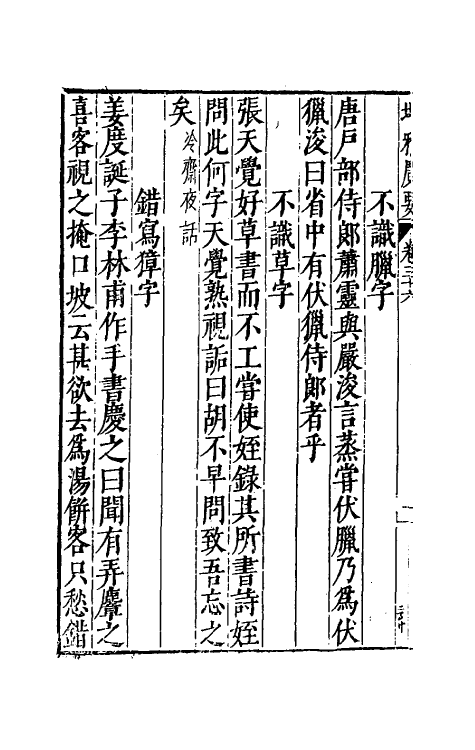 卷三十六
不識臘字
唐戶部侍郞蕭靈與嚴浚言蒸甞伏臘乃爲伏
獵浚曰省中有伏獵侍郞者乎
不識草字
張天覺好草書而不工甞使姪錄其所書詩姪
問此何字天覺熟視詬曰胡不早問致吾忘之
矣冷齋夜話
錯寫獐字
姜度誕子李林甫作手書慶之曰聞有弄麞之
喜客視之掩口坡云甚欲去爲湯餅客只愁錯